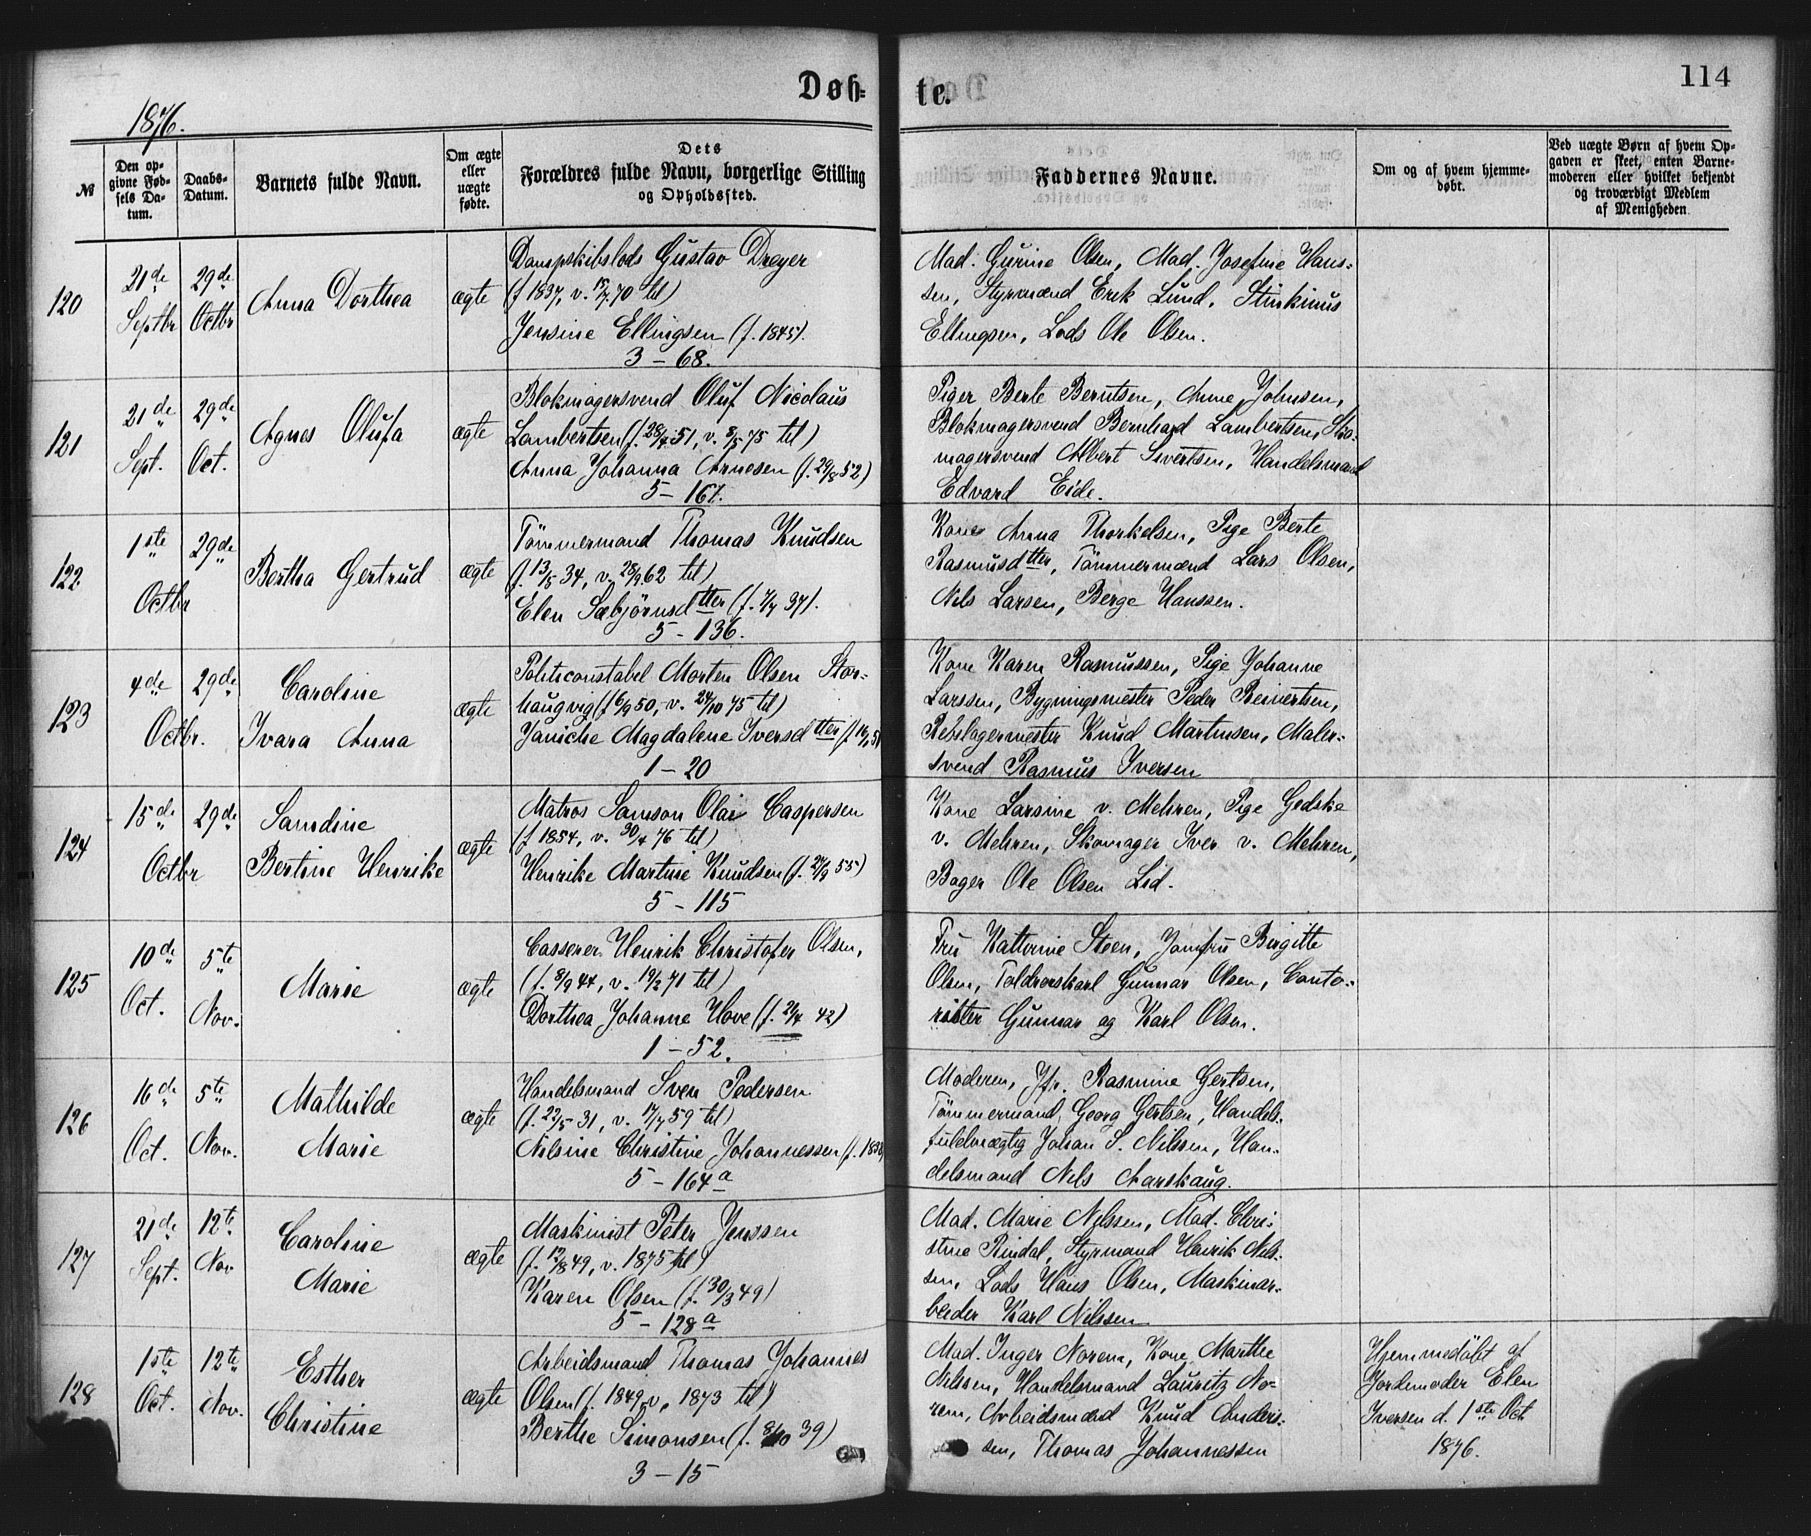 Døb-
te.
114
1876.
№
Den op-
givne Fød-
sels Da-
tum.
Daabs-
Datum.
Barnets fulde Navn.
Om ægte
eller
uægte
fødte.
Dets
Forældres fulde Navn, borgerlige Stilling
og Opholdssted.
Faddernes Navne.
Om og af hvem hjemme-
døbt.
Ved uægte Børn af hvem Op-
gaven er skeet, enten Barne-
moderen eller hvilket bekjendt
og troværdigt Medlem
af Menigheden
120
21de
Septbr
29de
Octbr
Anna Dorthea
ægte
Dampskibslods Gustav Dreyer
(f 1837, v. 17/7 70 til)
Jensine Ellingsen (f. 1845).
3 - 68.
Mad. Gurine Olsen, Mad. Josefine Hans-
sen, Styrmænd Erik Lund, Stinkinus
Ellingsen, Lods Ole Olsen.
121
21de
Sept.
29de
Oct.
Agnes Olufa
ægte
Blokmagersvend Oluf Nicolaus
Lambertsen (f. 28/7 51, v. 8/5 75 til)
Anna Johanna Arnesen (f. 29/8 52)
5 - 167.
Piger Berte Berntsen, Anne Johnsen,
Blokmagersvend Bernhard Lambertsen, Sko-
magersvend Albert Sivertsen, Handelsmand
Edvard Eide.
122
1ste
Octbr
29de
Bertha Gertrud
ægte
Tømmermand Thomas Knudsen
(f. 13/5 34, v. 28/9 62 til)
Elen Sæbjörnsdtter (f. 7/7 37).
5 - 136.
Kone Anna Thorkelsen, Pige Berte
Rasmusdtter, Tömmermænd Lars Olsen,
Nils Larsen, Berge Hanssen.
123
4de
Octbr.
29de
Caroline
Ivara Anna
ægte
Politiconstabel Morten Olsen Stor-
haugvig (f 6/9 50, v. 24/10 75 til)
Janiche Magdalene Iversdtter (f
1 - 20
Kone Karen Rasmussen, Pige Johanne
Larssen, Bygningsmester Peder Reinertsen,
Rebslagermester Knud Martinsen, Maler-
svend Rasmus Iversen
124
15de
Octbr
29de
Samdine
Bertine Henrike
ægte
Matros Samson Olai Caspersen
(f 1854, v. 30/4 76 til)
Henrike Martine Knudsen (f. 24/9 55)
5 - 115
Kone Larsine v. Mehren, Pige Gedske
v. Mehren, Skomager Iver v. Mehren,
Bager Ole Olsen Lid.
125
10de
Oct.
5te
Nov.
Marie
ægte
Casserer Henrik Christofer Olsen,
(f. 8/9 44, v. 19/2 71 til)
Dorthea Johanne Hove (f. 21/4 42)
1 - 52.
Fru Katterine Steen, Jomfru Birgitte
Olsen, Toldroerskarl Gunnar Olsen, Conto-
rister Gunnar og Karl Olsen.
126
16de
Oct.
5te
Nov.
Mathilde
Marie
ægte
Handelsmand Sven Pedersen
(f. 22/5 31, v. 17/7 59 til)
Nilsine Christine Johannessen (f. 1838)
5 - 164a
Moderen, Jfr. Rasmine Gertsen,
Tömmermand Georg Gertsen, Handels-
fuldmægtig Johan S. Nilssen, Han-
delsmand Nils Aarskaug.
127
21de
Sept.
12te
Nov
Caroline
Marie
ægte
Maskinist Peter Jenssen
(f. 12/8 49, v. 1875 til)
Karen Olsen (f. 30/3 49)
5 - 128a
Mad. Marie Nilssen, Mad. Chri-
stine Rindal, Styrmand Henrik Nils-
sen, Lods Hans Olsen, Maskinar-
beider Karl Nilssen
128
1ste
Oct.
12te
Nov.
Esther
Christine
ægte
Arbeidsmand Thomas Johannes
Olsen (f. 1849, v. 1873 til)
Berthe Simonsen (f. 8/10 39)
3 - 15
Mad. Inger Norem, Kone Marthe
Nilssen, Handelsmand Lauritz No-
rem, Arbeidsmænd Knud Anders-
sen, Thomas Johannessen
Hjemmedöbt af
Jordemoder Elen
Iversen d. 1ste Oct
1876.